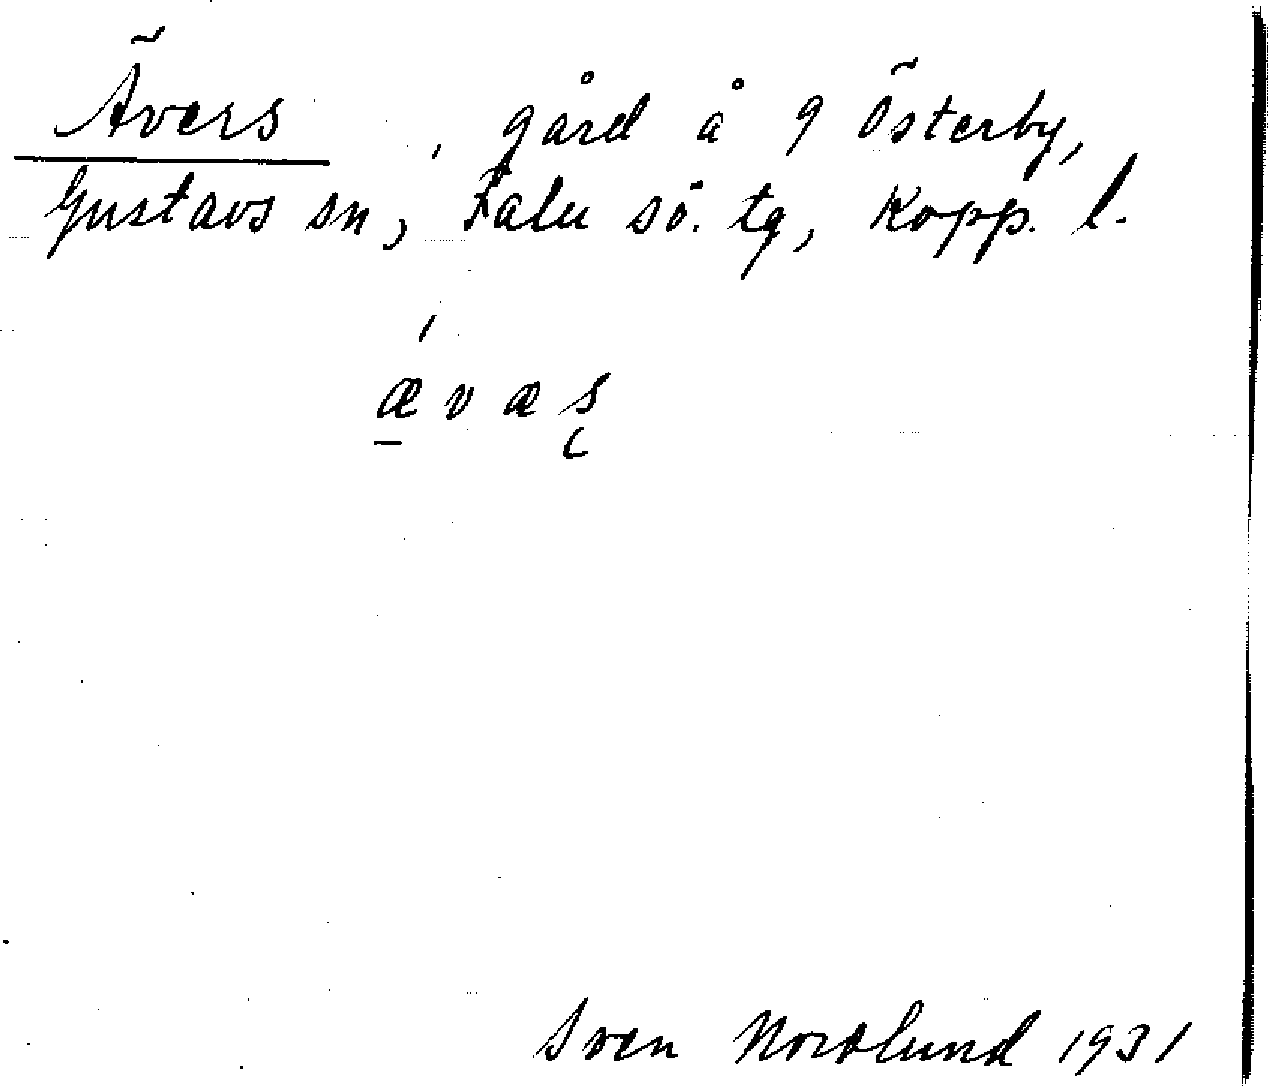 Ävers , gård å 9 Österby,
Gustavs sn, Falu sö. tg, Kopp. l.
ǽ̠ v æ ʂ
Sven Nordlund 1931